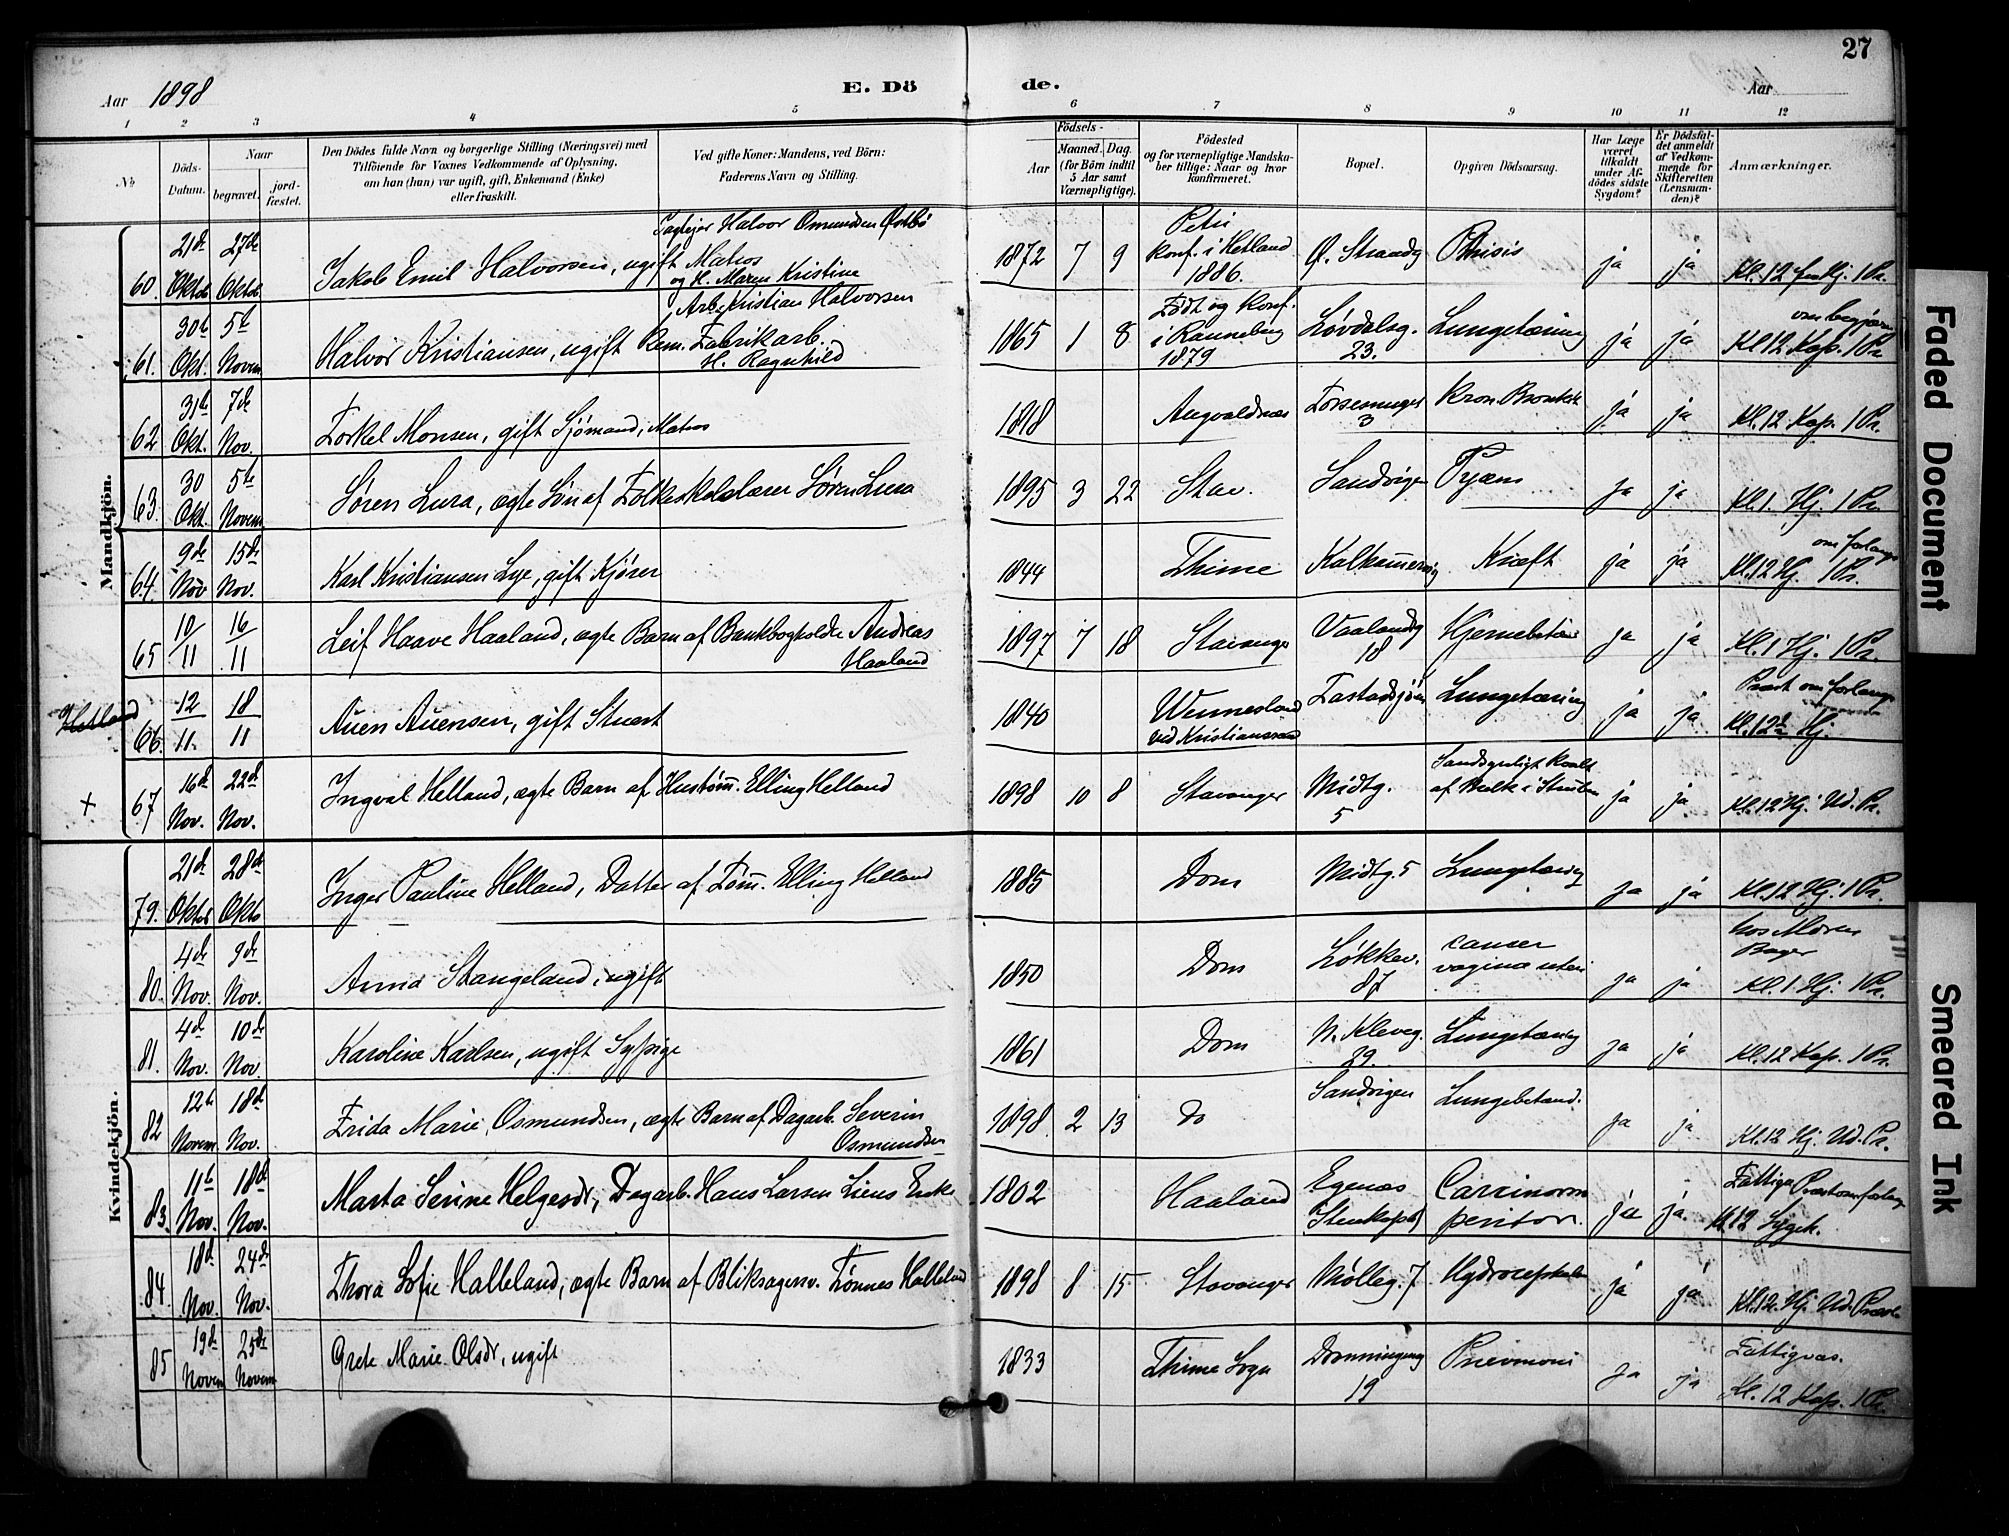 27
Aar 1898 E. Dö de. Aar
1 2 3 4 5 6 7 8 9 10 11 12
No
Döds-Datum.
Naar
begravet.
jord-fæstet.
Den Dödes fulde Navn og borgerlige Stilling (Næringsvei) med
Tilföiende for Voxnes Vedkommende af Oplysning,
om han (hun) var ugift, gift, Enkemand (Enke)
eller fraskilt.
Ved gifte Koner: Mandens, ved Börn:
Faderens Navn og Stilling.
Födsels-
Aar
Maaned. Dag.
(for Börn indtil
5 Aar samt
Værnepligtige).
Födested
og for værnepligtige Mandska-
ber tillige: Naar og hvor
konfirmeret.
Bopæl.
Opgiven Dödsaarsag.
Har Læge
været
tilkaldt
under Af-
dödes sidste
Sygdom?
Er Dödsfal-
det anmeldt
af Vedkom-
mende for
Skifteretten
(Lensman-
den)?
Anmærkninger.
Mandkjön.
60. 21de Oktob 27de Oktob. Jakob Emil Halvorsen, ugift Matros Halvor Osmundsen og H. Maren Kristine 1872 7 9 Petri konf. i Hetland 1886. Ø. Strandg ja ja Kl. 12 1 Pr.
61. 30te Okt. 5te Novem Halvor Kristiansen, ugift Fabrikarb. Arb. Kristian Halvorsen H. Ragnhild 1865 1 8 Født og konf. i 1879 Løvdalsg. 23. Lungetæring ja ja Kl 12 Kap. 1 Pr.
62 31te Okt. 7de Nov. Torkel Monsen, gift Sjømand, Matros 1818 3 Kron. Bronkit ja ja Kl. 12 Kap. 1 Pr.
63. 30 Okt. 5te Novem Søren Lura, ægte Søn af Folkeskolelærer Søren Lura 1895 3 22 Stav. Sandvigen Pyæmi ja ja Kl. 1. Hj. 1 Pr.
64. 9de Nov 15de Nov. Karl Kristiansen Lye, gift Kjører 1844 Thime Kræft ja ja om forlangt Kl. 12 Hj. 1 Pr.
65 10/11 16/11 Leif Haave Haaland, ægte Barn af Bankbogholder Andreas Haaland 1897 7 18 Stavanger Vaalandg 18 ja ja Kl. 1 Hj. 1 Pr.
Hetland 66. 12/11. 18/11 Auen Auensen, gift Stuert 1840 Wennesland ved Kristianssand Lungetæring ja ja Præst om forlangt Kl. 12 Hj.
+ 67 16de Nov. 22de Nov. Ingval Helland, ægte Barn af Hustøm. Elling Helland 1898 10 8 Stavanger Midtg. 5 Sandsynligt kvalt af i Struben ja ja Kl. 12 Hj. Ud. Pr.
Kvindekjön.
79. 21de Oktob 28de Oktob Inger Pauline Helland, Datter af Tøm. Elling Helland 1885 Dom Midtg. 5 Lungetæring ja ja Kl. 12 Hj. 1 Pr.
80. 4de Nov. 9de Nov. Anna Stangeland, ugift 1850 Dom Løkkev. 87 cancer vagina uteri ja ja hos Moren Kl. 1. Hj. 1 Pr.
81. 4de Nov. 10de Nov. Karoline Karlsen, ugift Sypige 1861 Dom N. Kleveg. 29. Lungetæring ja ja Kl. 12 Kap. 1 Pr.
82 12te Novem. 18de Nov. Frida Marie Osmundsen, ægte Barn af Dagarb. Severin Osmundsen 1898. 2 13 Do Sandvigen Lungebetænd. ja ja Kl. 12 Hj. Ud. Pr.
83. 11te Nov. 18de Nov. Marta Serine Helgesdr, Dagarb. Hans Larsen Liens Enke 1802 Haaland Egenæs Stenkapb Carcinoom periton. ja ja. Fattigv. Præst om forlang Kl. 12 Sygeh.
84. 18de Nov. 24de Nov. Thora Sofie Halleland, ægte Barn af Bliksagenv. Tønnes Halleland 1898 8 15 Stavanger Mølleg. 7 Hydrocephalus ja ja Kl. 12. Hj. Ud. Præst
85 19de Novem 25de Novem Grete Marie Olsdr, ugift 1833 Thime Sogn Dronningensg 19 Pnevmoni ja ja Fattigvæs. Kl. 12 Kap. 1 Pr.
Faded Document
Smeared Ink